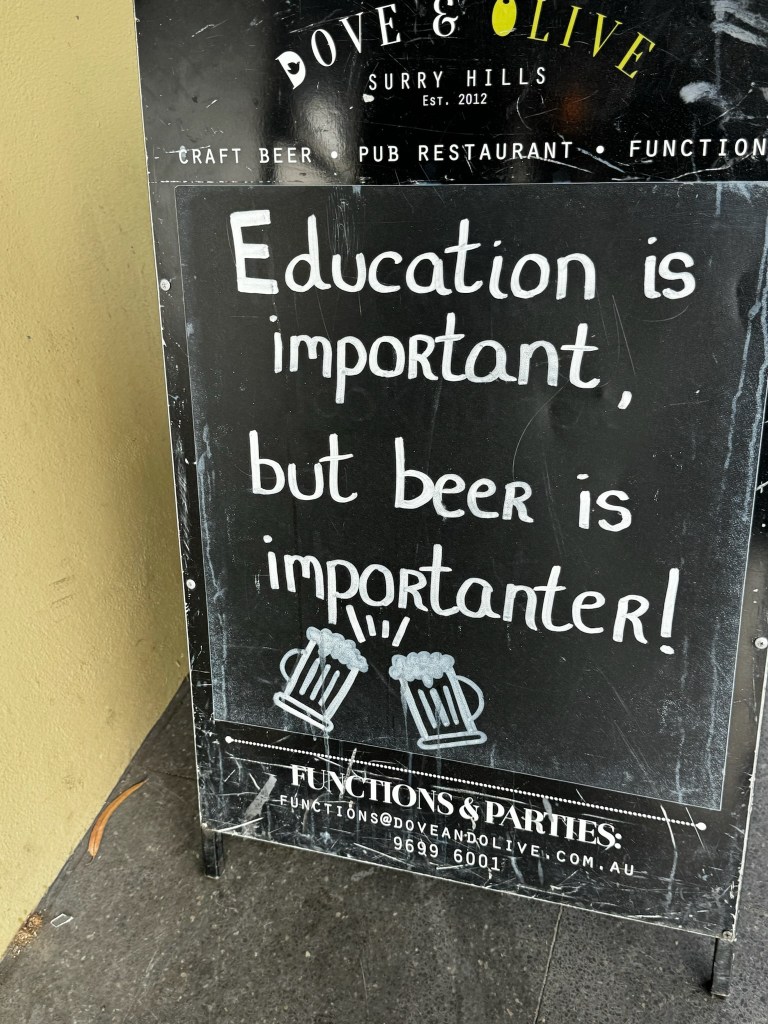 DOVE & OLIVE
SURRY HILLS
EST. 2012
CRAFT BEER • PUB RESTAURANT • FUNCTION
Education is
important,
but beer is
importanter!
FUNCTIONS & PARTIES:
FUNCTIONS@DOVEANDOLIVE.COM.AU
9699 6001